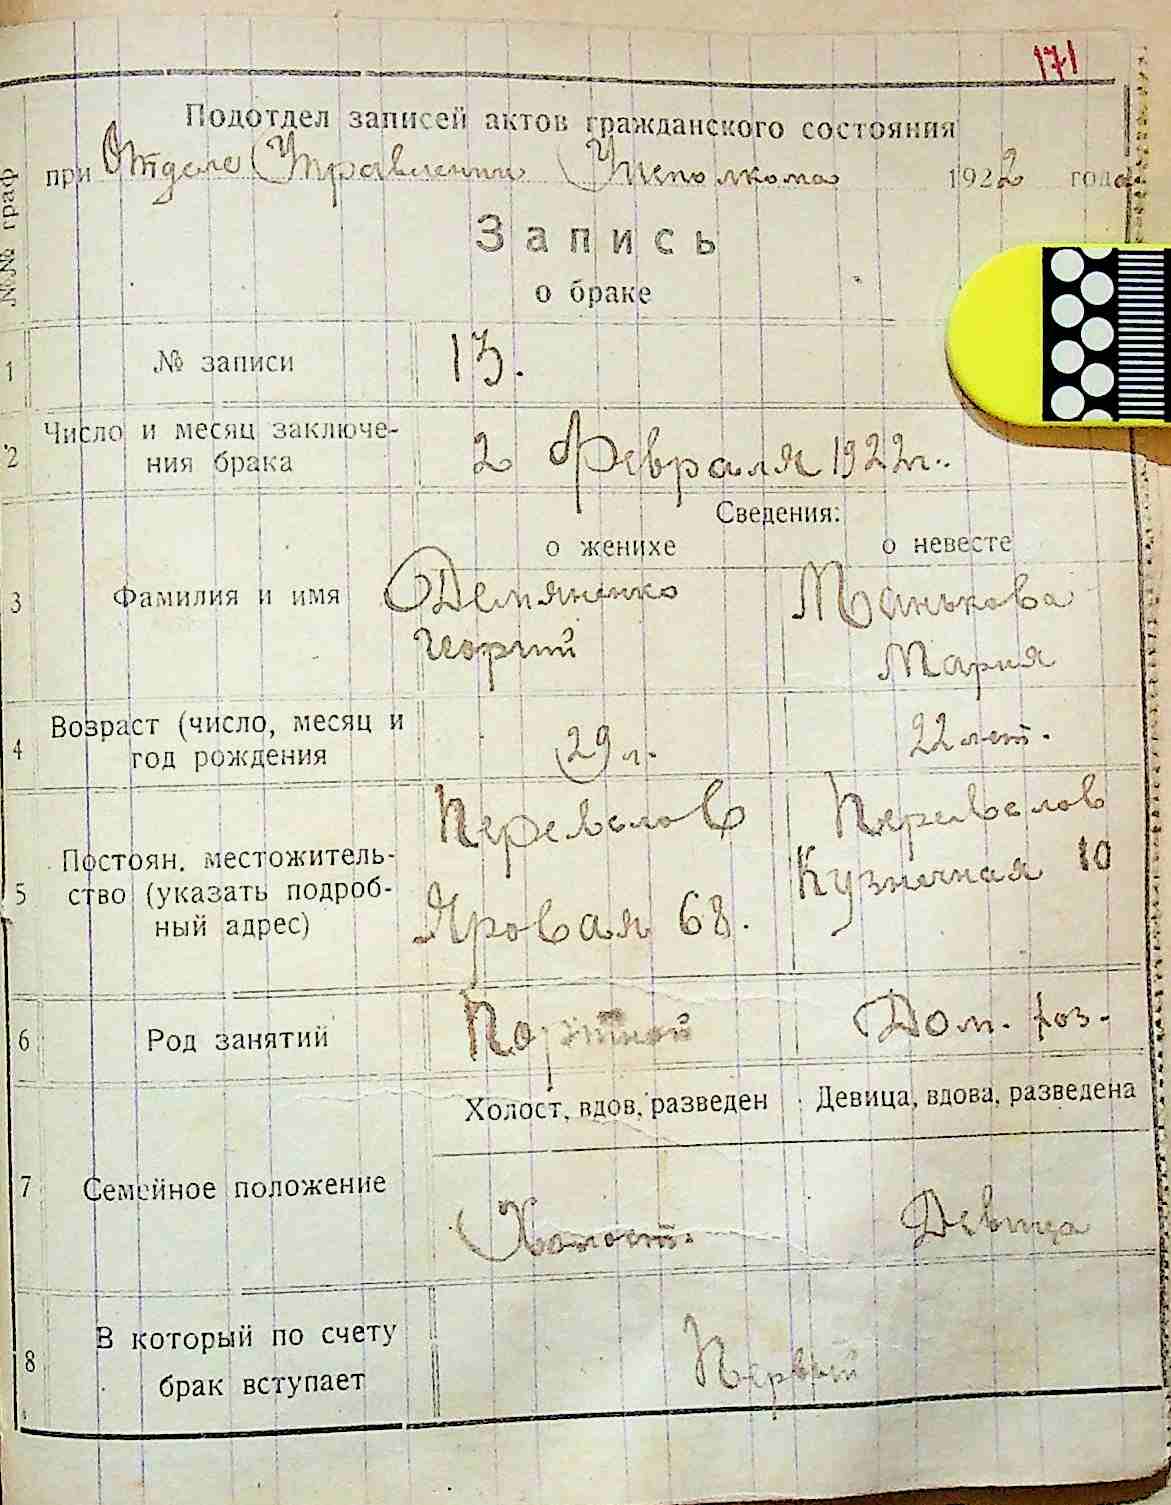 171
Подотдел записей актов гражданского состояния
при Отделе Управлении Уисполкома 1922 года
№№ граф
Запись
о браке
1 № записи 13.
2 Число и месяц заключе-
ния брака 2 Февраля 1922 г.
Сведения:
о женихе о невесте
3 Фамилия и имя Демяненко Манькова
Георгий Мария
4 Возраст (число, месяц и
год рождения 29 л. 22 лет.
5 Постоян. местожитель-
ство (указать подроб-
ный адрес)
Переволов Переволов
Яровая 68. Кузнечная 10
6 Род занятий Портной Дом. хоз.
Холост, вдов, разведен Девица, вдова, разведена
7 Семейное положение Холост. Девица
8 В который по счету
брак вступает Первый